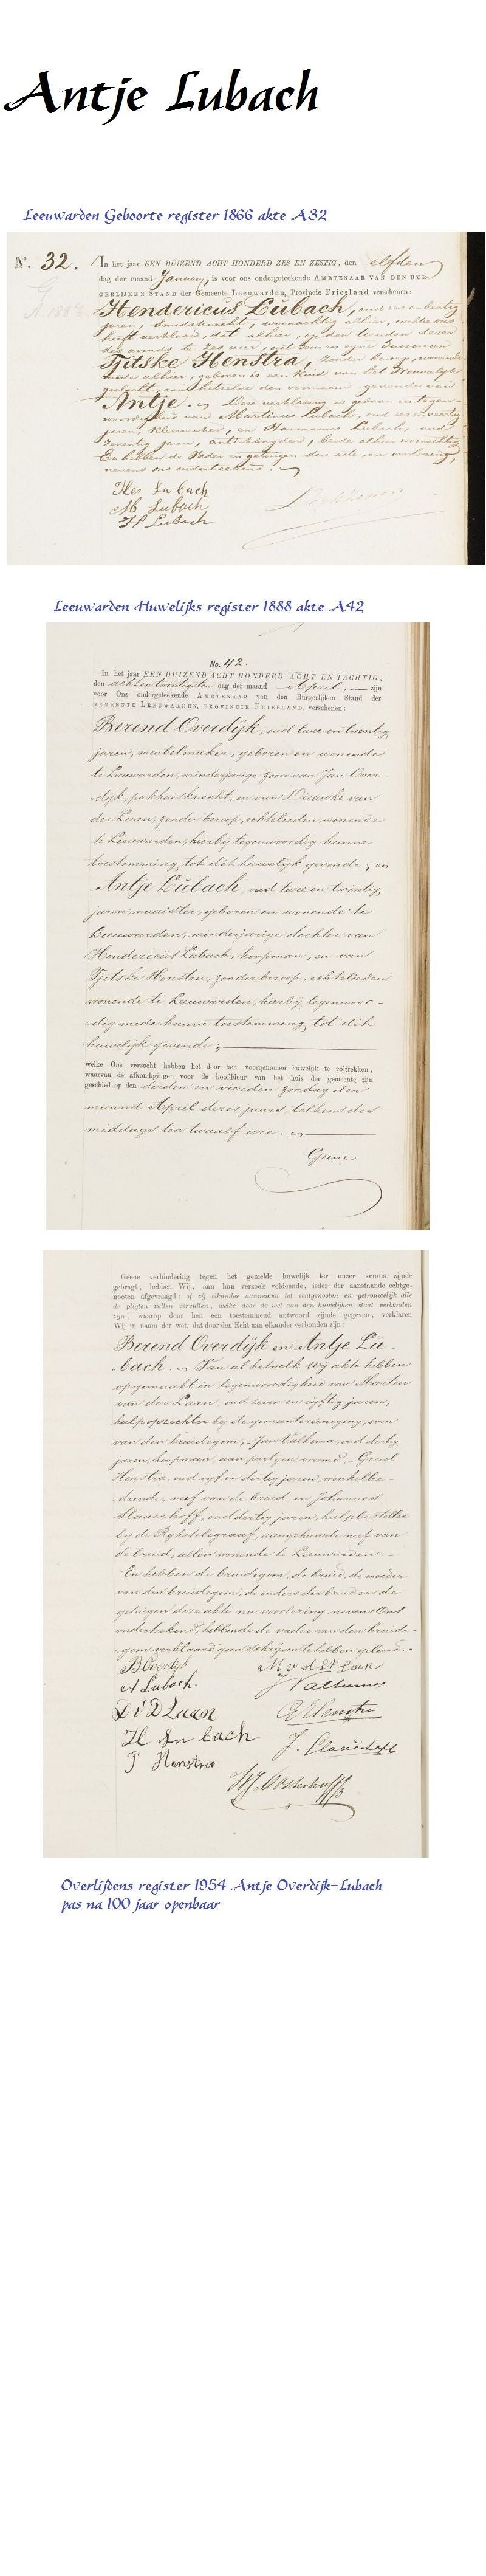 Antje Lubach
Leeuwarden Geboorte register 1866 akte A32
No. 32. In het jaar EEN DUIZEND ACHT HONDERD ZES EN ZESTIG, den elfden
dag der maand January, is voor ons ondergeteekende AMBTENAAR VAN DEN BUR-
GERLIJKEN STAND der Gemeente LEEUWARDEN, Provincie Friesland verschenen:
Hendericus Lubach, oud zes en dertig
jaren, smidsknecht, woonachtig alhier, welke ons
heeft verklaard, dat alhier, op den tienden dezer
des avonds te zes ure, uit hem en zijne huisvrouw
Tjitske Henstra, zonder beroep, wonende
mede alhier, geboren is een kind van het vrouwelijk
geslacht, aan hetwelke den voornaam gevende van
Antje. Deze verklaring is gedaan in tegen-
woordigheid van Martinus Lubach, oud zes en veertig
jaren, kleermaker, en Harmanus Lubach, oud
zeventig jaren, wonachtig
En hebben de Vader en getuigen deze acte, na voorlezing,
nevens ons onderteekend.
Hes Lubach
M Lubach
H Lubach
Leeuwarden Huwelijks register 1888 akte A42
No. 42.
In het jaar EEN DUIZEND ACHT HONDERD ACHT EN TACHTIG,
den achtentwintigsten dag der maand April, zijn
voor Ons ondergeteekende AMBTENAAR van den Burgerlijken Stand der
GEMEENTE LEEUWARDEN, PROVINCIE FRIESLAND, verschenen:
Berend Overdijk, oud twee en twintig
jaren, meubelmaker, geboren en wonende
te Leeuwarden, minderjarige zoon van Jan Over-
dijk, pakhuisknecht, en van Dieuwke van
der Laan, zonder beroep, echtelieden, wonende
te Leeuwarden, hierbij tegenwoordig hunne
toestemming tot dit huwelijk gevende; en
Antje Lubach, oud twee en twintig
jaren, naaister, geboren en wonende te
Leeuwarden, minderjarige dochter van
Hendericus Lubach, koopman, en van
Tjitske Henstra, zonder beroep, echtelieden
wonende te Leeuwarden, hierbij tegenwoor-
dig mede hunne toestemming tot dit
huwelijk gevende;
welke Ons verzocht hebben het door hen voorgenomen huwelijk te voltrekken,
waarvan de afkondigingen voor de hoofddeur van het huis der gemeente zijn
geschied op den derden en vierden zondag der
maand April dezes jaars, telkens des
middags ten twaalf ure.
Geene
Geene verhindering tegen het gemelde huwelijk ter onzer kennis zijnde
gebragt, hebben Wij, aan hun verzoek voldoende, ieder der aanstaande echtge-
nooten afgevraagd: of zij elkander aannemen tot echtgenooten en getrouwelijk alle
de pligten zullen vervullen, welke door de wet aan den huwelijken staat verbonden
zijn, waarop door hen een toestemmend antwoord zijnde gegeven, verklaren
Wij in naam der wet, dat door den Echt aan elkander verbonden zijn:
Berend Overdijk en Antje Lu-
bach. Van al hetwelk wij akte hebben
opgemaakt in tegenwoordigheid van Marten
van der Laan, oud zeven en vijftig jaren,
hulpopzichter bij de gemeentereiniging, oom
van den bruidegom, Jan Valkema, oud dertig
jaren, koopman, aan partijen vreemd,
Henstra, oud vijf en dertig jaren, winkelbe-
diende, neef van de bruid en Johannes
Slauerhoff, oud dertig jaren, hulpbesteller
bij de Rijkstelegraaf, aangehuwde neef van
de bruid, allen wonende te Leeuwarden.
En hebben de bruidegom, de bruid, de moeder
van den bruidegom, de ouders der bruid en de
getuigen deze akte na voorlezing nevens Ons
onderteekend, hebbende de vader van den bruide-
gom verklaard geen schrijven te hebben geleerd.
B Overdijk
A Lubach.
D v D Laan
H Lubach
T Henstra
M v d Laan
J Valkema
Henstra
J. Slauerhoff
Overlijdens register 1954 Antje Overdijk-Lubach
pas na 100 jaar openbaar